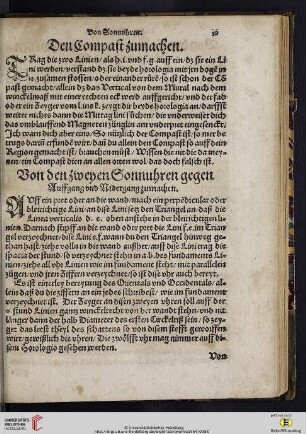 Von Sonnuhren. 36
Den Compast zumachen.
Trag die zwo Linien/ als h.i. vnd f.g. auff ein/ dz sie ein Li
ni werden/ verstand dz sie beyde horologia mit
in zusamen stossen/ oder einander
past gemacht/ allein dz das Vertical von dem Mural nach dem
winckelmaß mit einer rechten eck werd auffgericht/ vnd der fad/
oder ein Zeyger vom l. ins k. zeygt dir beyde horologia an/ darffst
weiter nichts dann die Mittag lini suchen/ die vnderweiset dich
das vmblauffend Magneten zünglin am vnderpret eingesenckt.
Ich warn dich aber eins/ So nützlich der Compast ist/ so mer be
trugs darin erfund wirt/ das du allein den Compast so auff dein
Region gemacht ist/ brauchen must/
nen/ ein Compast dien an allen orten wol/ das doch falsch ist.
Von den zweyen Sonnuhren gegen
Auffgang vnd Nidergang zumachen.
Auff ein pret oder an die wand/ mach ein perpendicular oder
bleirichtige Lini/ an dise Lini setz den Triangel an/ daß die
Linea verticalis d.e. oben anstehe an der bleirichtigen Li
nien. Darnach stupff an die wand oder pret die Lini f.e. im Trian
gel verzeychnet/ dise Lini e.f. wann du den Triangel hinweg ge-
than hast/ zeihe volln in die wand
spacia der stund/ so verzeychnet stehn in a.b. des fundaments Li
nien/ ziehe all vhr Linien wie im fundament steht/ mit parallelen
zügen/ vnd
Es ist einerley bereytung des Orientals vnd Occidentals/ al-
lein das du die ziffern an ein jedes schreibest/ wie im fundament
verzeychnet ist. Der Zeyger an disen zweyen vhren soll auff der
6 stund Linien gantz winckelrecht von der wand stehn/ vnd nit
länger dann der halb Diameter des ersten Circkels ist/ so zey-
get das letst theyl des schattens so von disem stefft geworffen
wirt/ gewißlich die vhren/ Die zwölfft vhr mag nimmer auff di-
sem Horologio gesehen werden.
Von